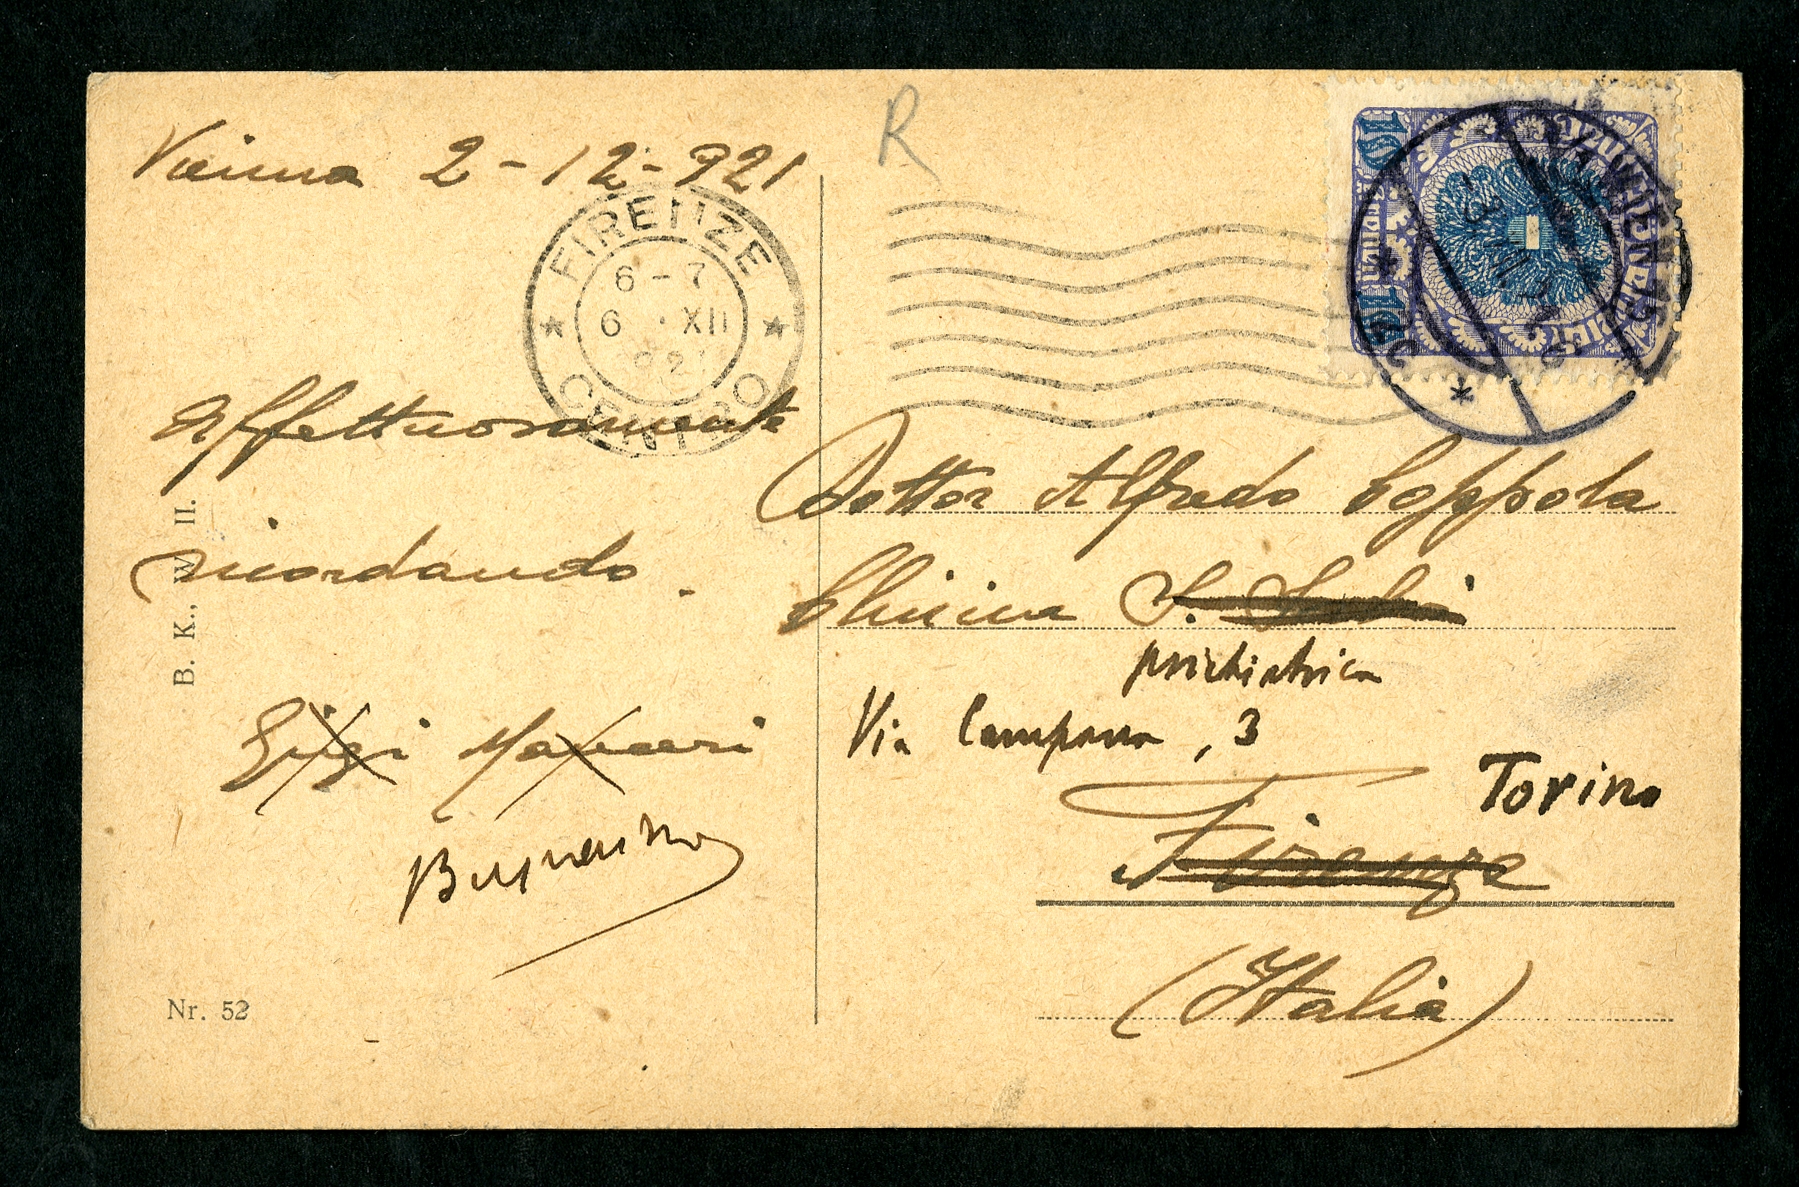 Vienna 2-12-921
R
FIRENZE
6-7
6 · XII
CENTRO
WIEN
10
10
Affettuosamente
ricordando.
Dottor Alfredo Coppola
Clinica S. Salvi
psichiatrica
Via Campana, 3
Torino
Firenze
(Italia)
Gigi
B. K., W II.
Nr. 52